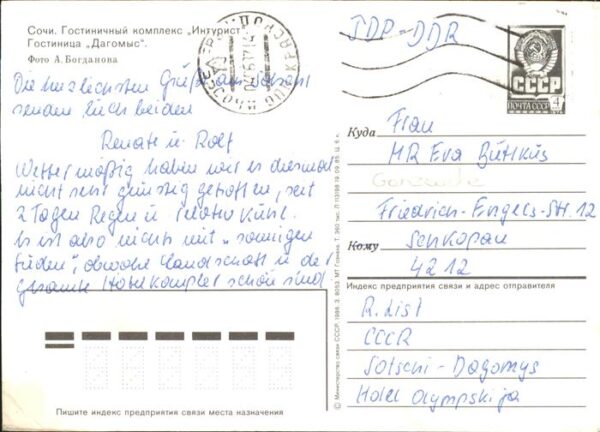 Сочи. Гостиничный комплекс „Интурист
Гостиница „Дагомыс".
Фото А. Богданова
Die herzlichsten Grüße aus Sotschi
senden Euch beiden
Renate u. Rolf
Wettermäßig haben wir es diesmal
nicht sehr günstig getroffen, seit
2 Tagen Regen u. relativ kühl.
Es ist also nichts mit „sonnigen
Süden", obwohl Landschaft u. der
gesamte Hotelkomplex schön sind
Пишите индекс предприятия связи места назначения
DDR
СССР
ПОЧТА СССР
4
Куда
Frau
MR Eva Bütkus
Friedrich-Engels-Str. 12
Кому
Schkopau
4212
Индекс предприятия связи и адрес отправителя
R. List
CCCR
Sotschi - Dagomys
Hotel Olympskija
© Министерство связи СССР. 1986. З. 8053. МТ Гознака. Т.